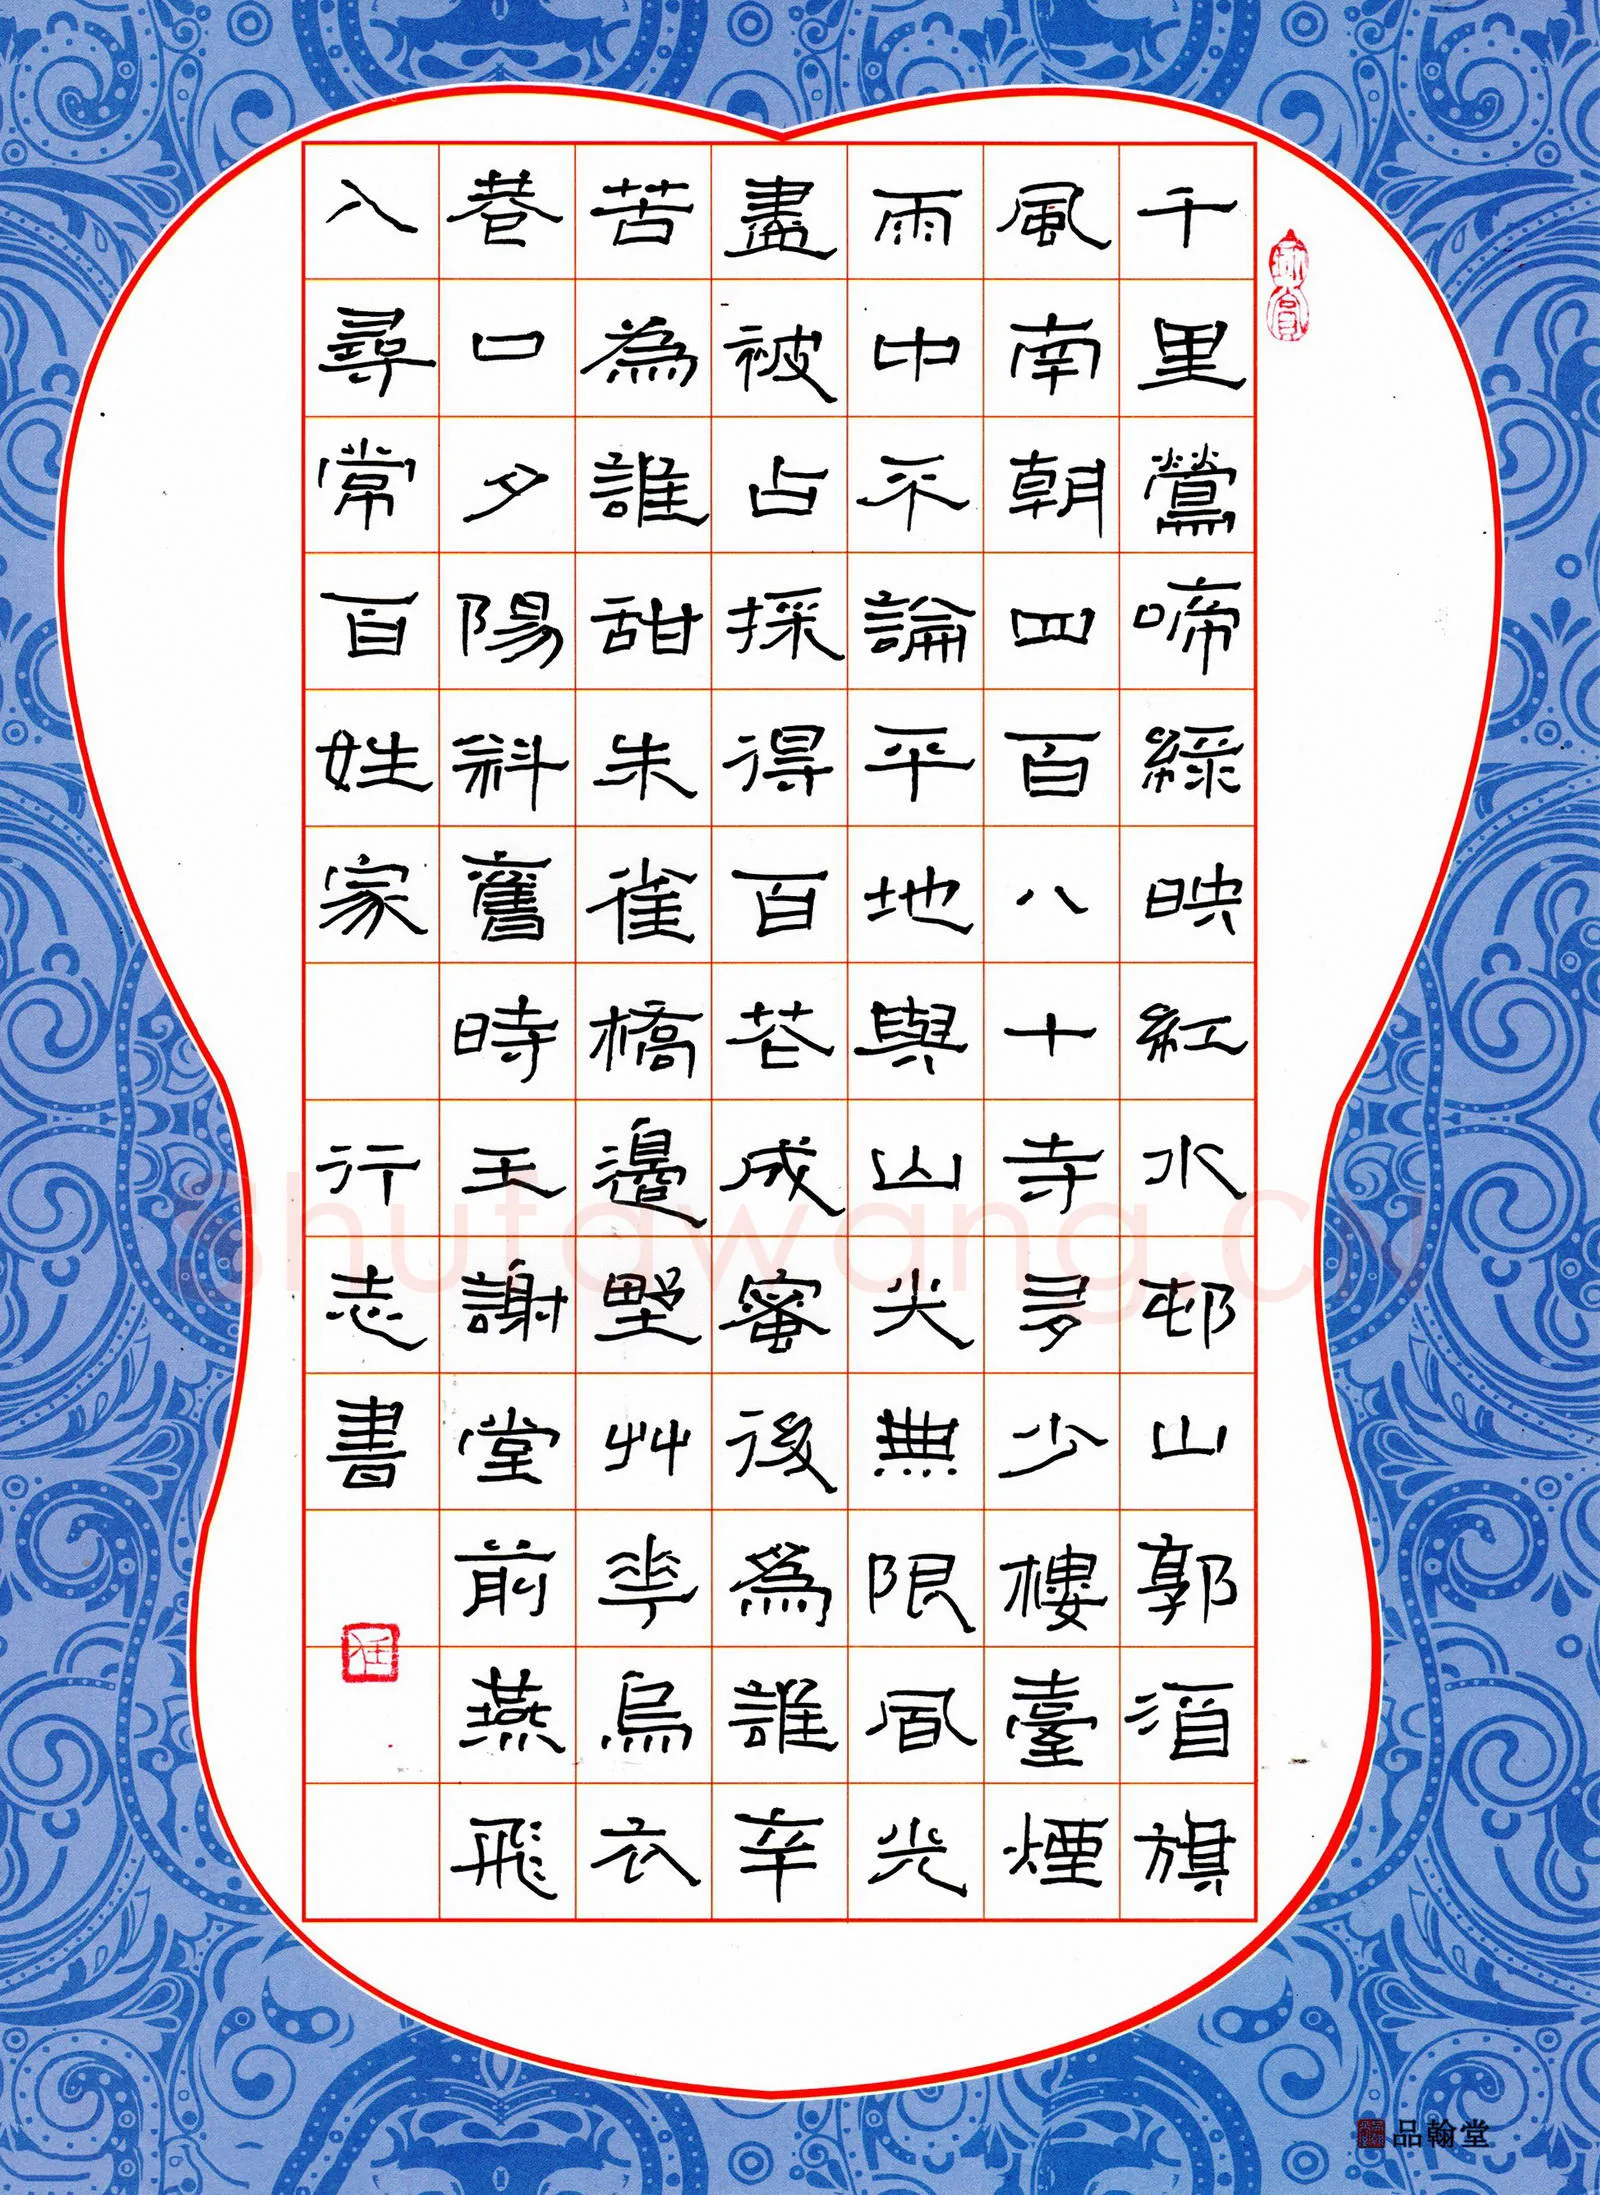 千里鶯啼綠映紅水邨山郭酒旗
風南朝四百八十寺多少樓臺煙
雨中不論平地與山尖無限風光
盡被占採得百花成蜜後爲誰辛
苦為誰甜朱雀橋邊野艸華烏衣
巷口夕陽斜舊時王謝堂前燕飛
入尋常百姓家 行志書
shufawang.cn
品翰堂